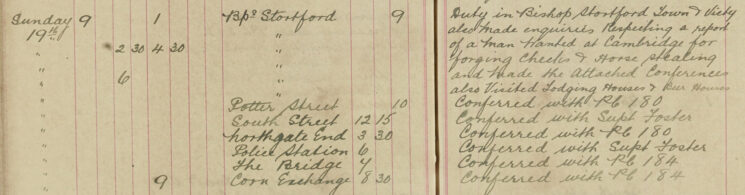 Sunday 9 1 Bps Stortford 9 Duty in Bishop Stortford Town & Victy
19th " also made enquiries Respecting a report
" 2 30 4 30 " of a Man Wanted at Cambridge for
" " forging Checks & Horse Stealing
" 6 " and Made the Attached Conferences
" " also Visited Lodging Houses & Beer Houses
" Potter Street 10 Conferred with Pc 180
" South Street 12 15 Conferred with Supt Foster
" Northgate End 3 30 Conferred with Pc 180
" Police Station 6 Conferred with Supt Foster
" The Bridge 7 Conferred with Pc 184
" 9 Corn Exchange 8 30 Conferred with Pc 184